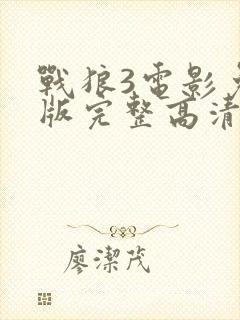 戰狼3電影免
版完整高清
廖潔茂